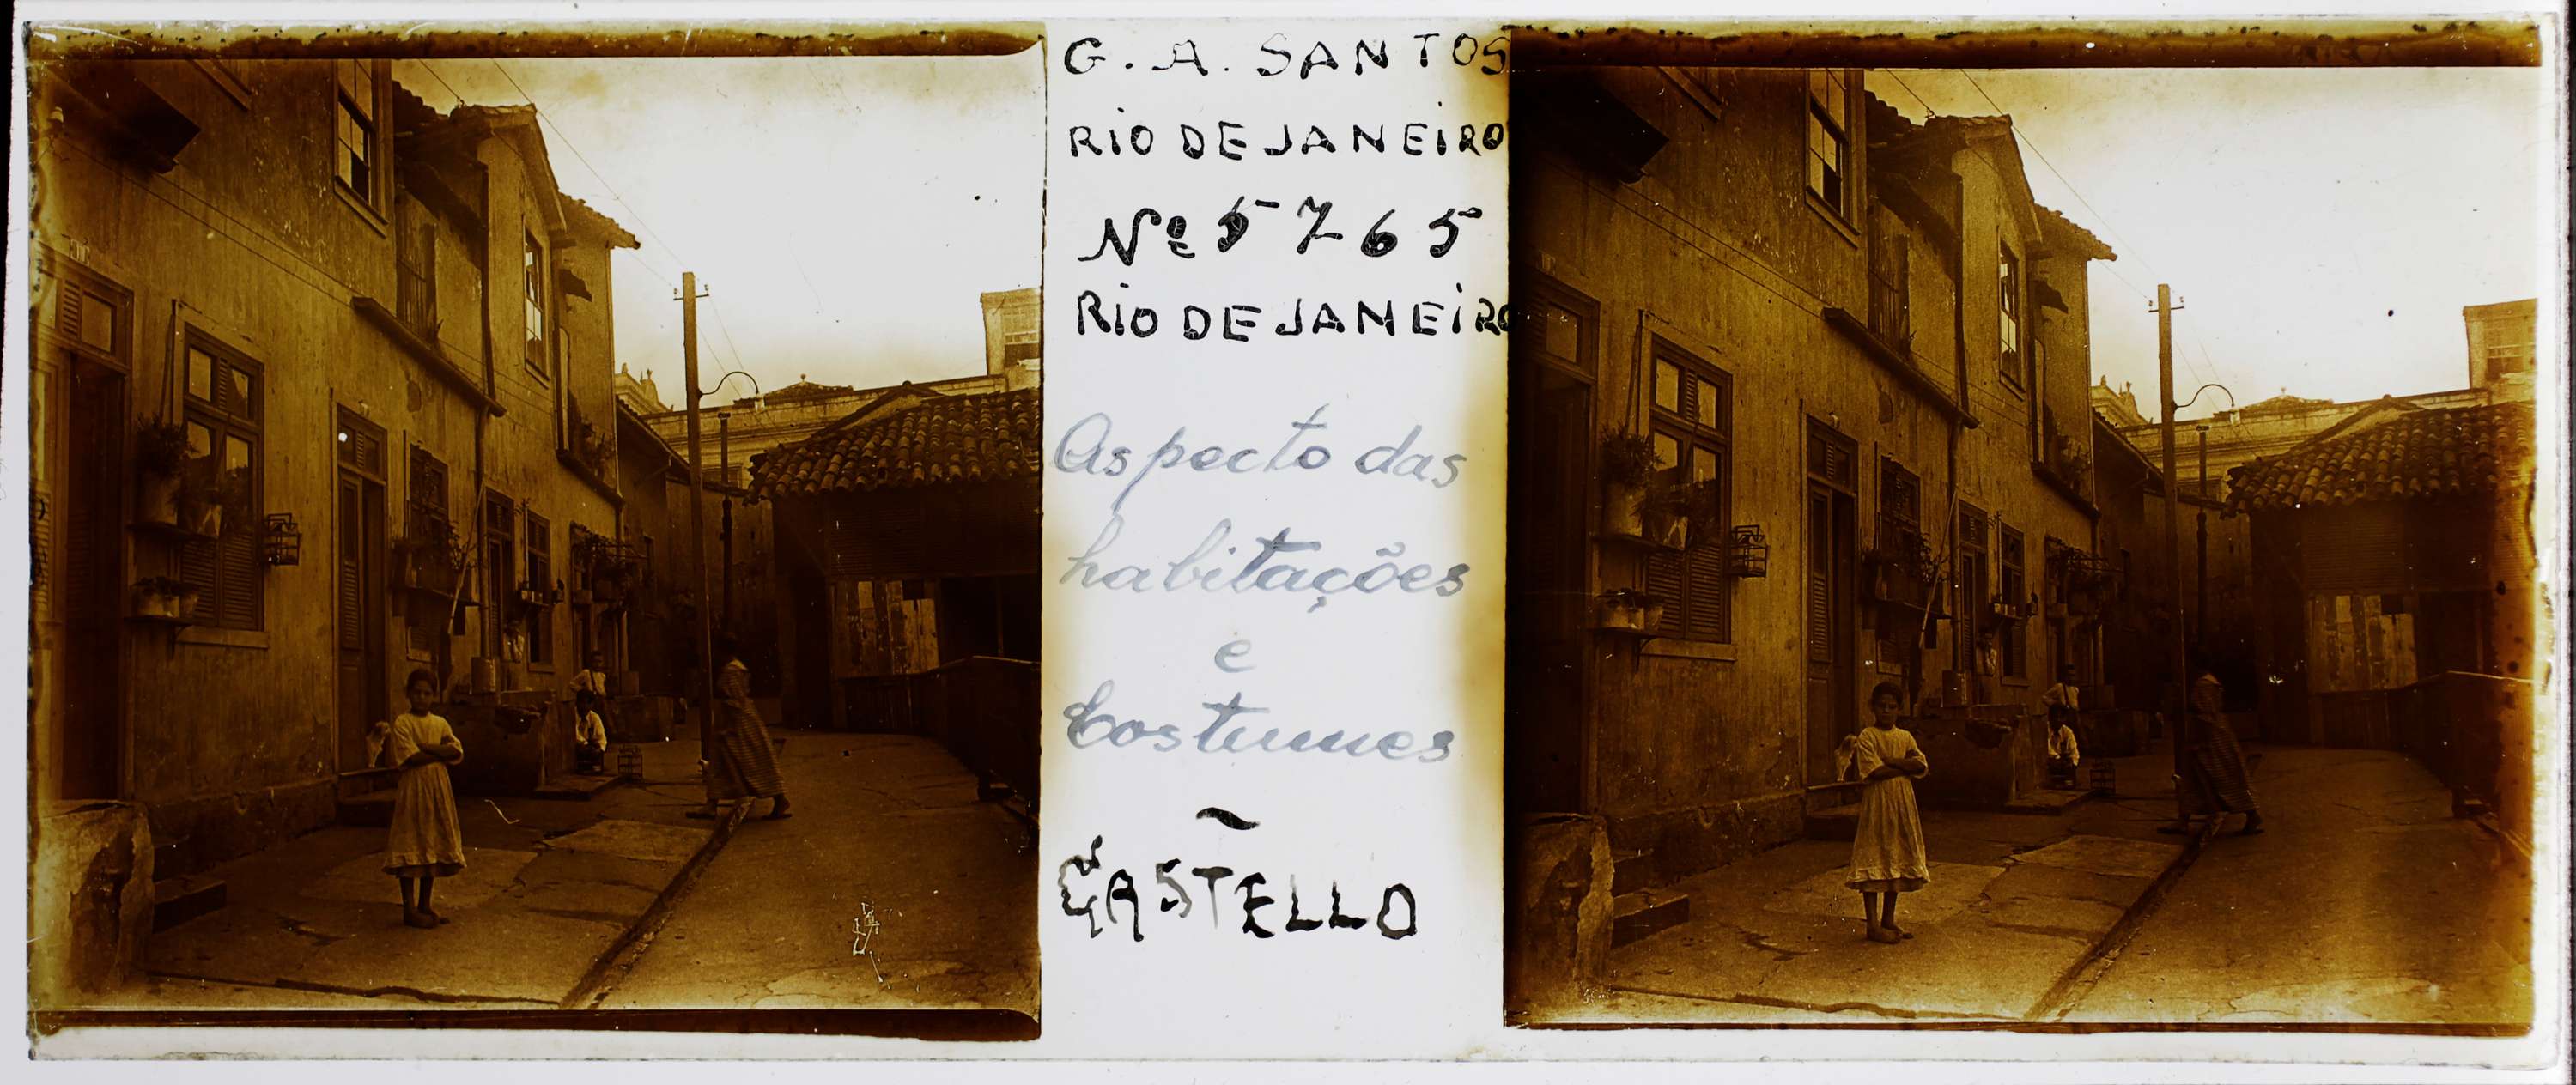 G. A. SANTOS
RIO DE JANEIRO
Nº 5765
RIO DE JANEIRO
Aspecto das
habitações
e
Costumes
~
CASTELLO